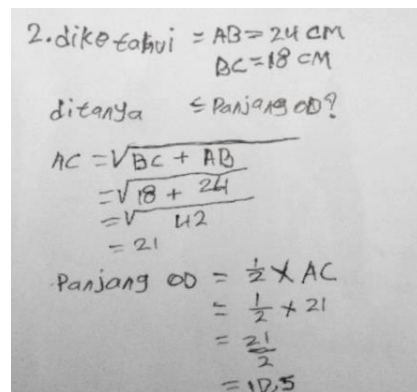 2. diketahui = AB = 24 cm
BC = 18 cm
ditanya = Panjang OD?
AC = √BC + AB
= √18 + 24
= √42
= 21
Panjang OD = 1/2 × AC
= 1/2 × 21
= 21/2
= 10,5